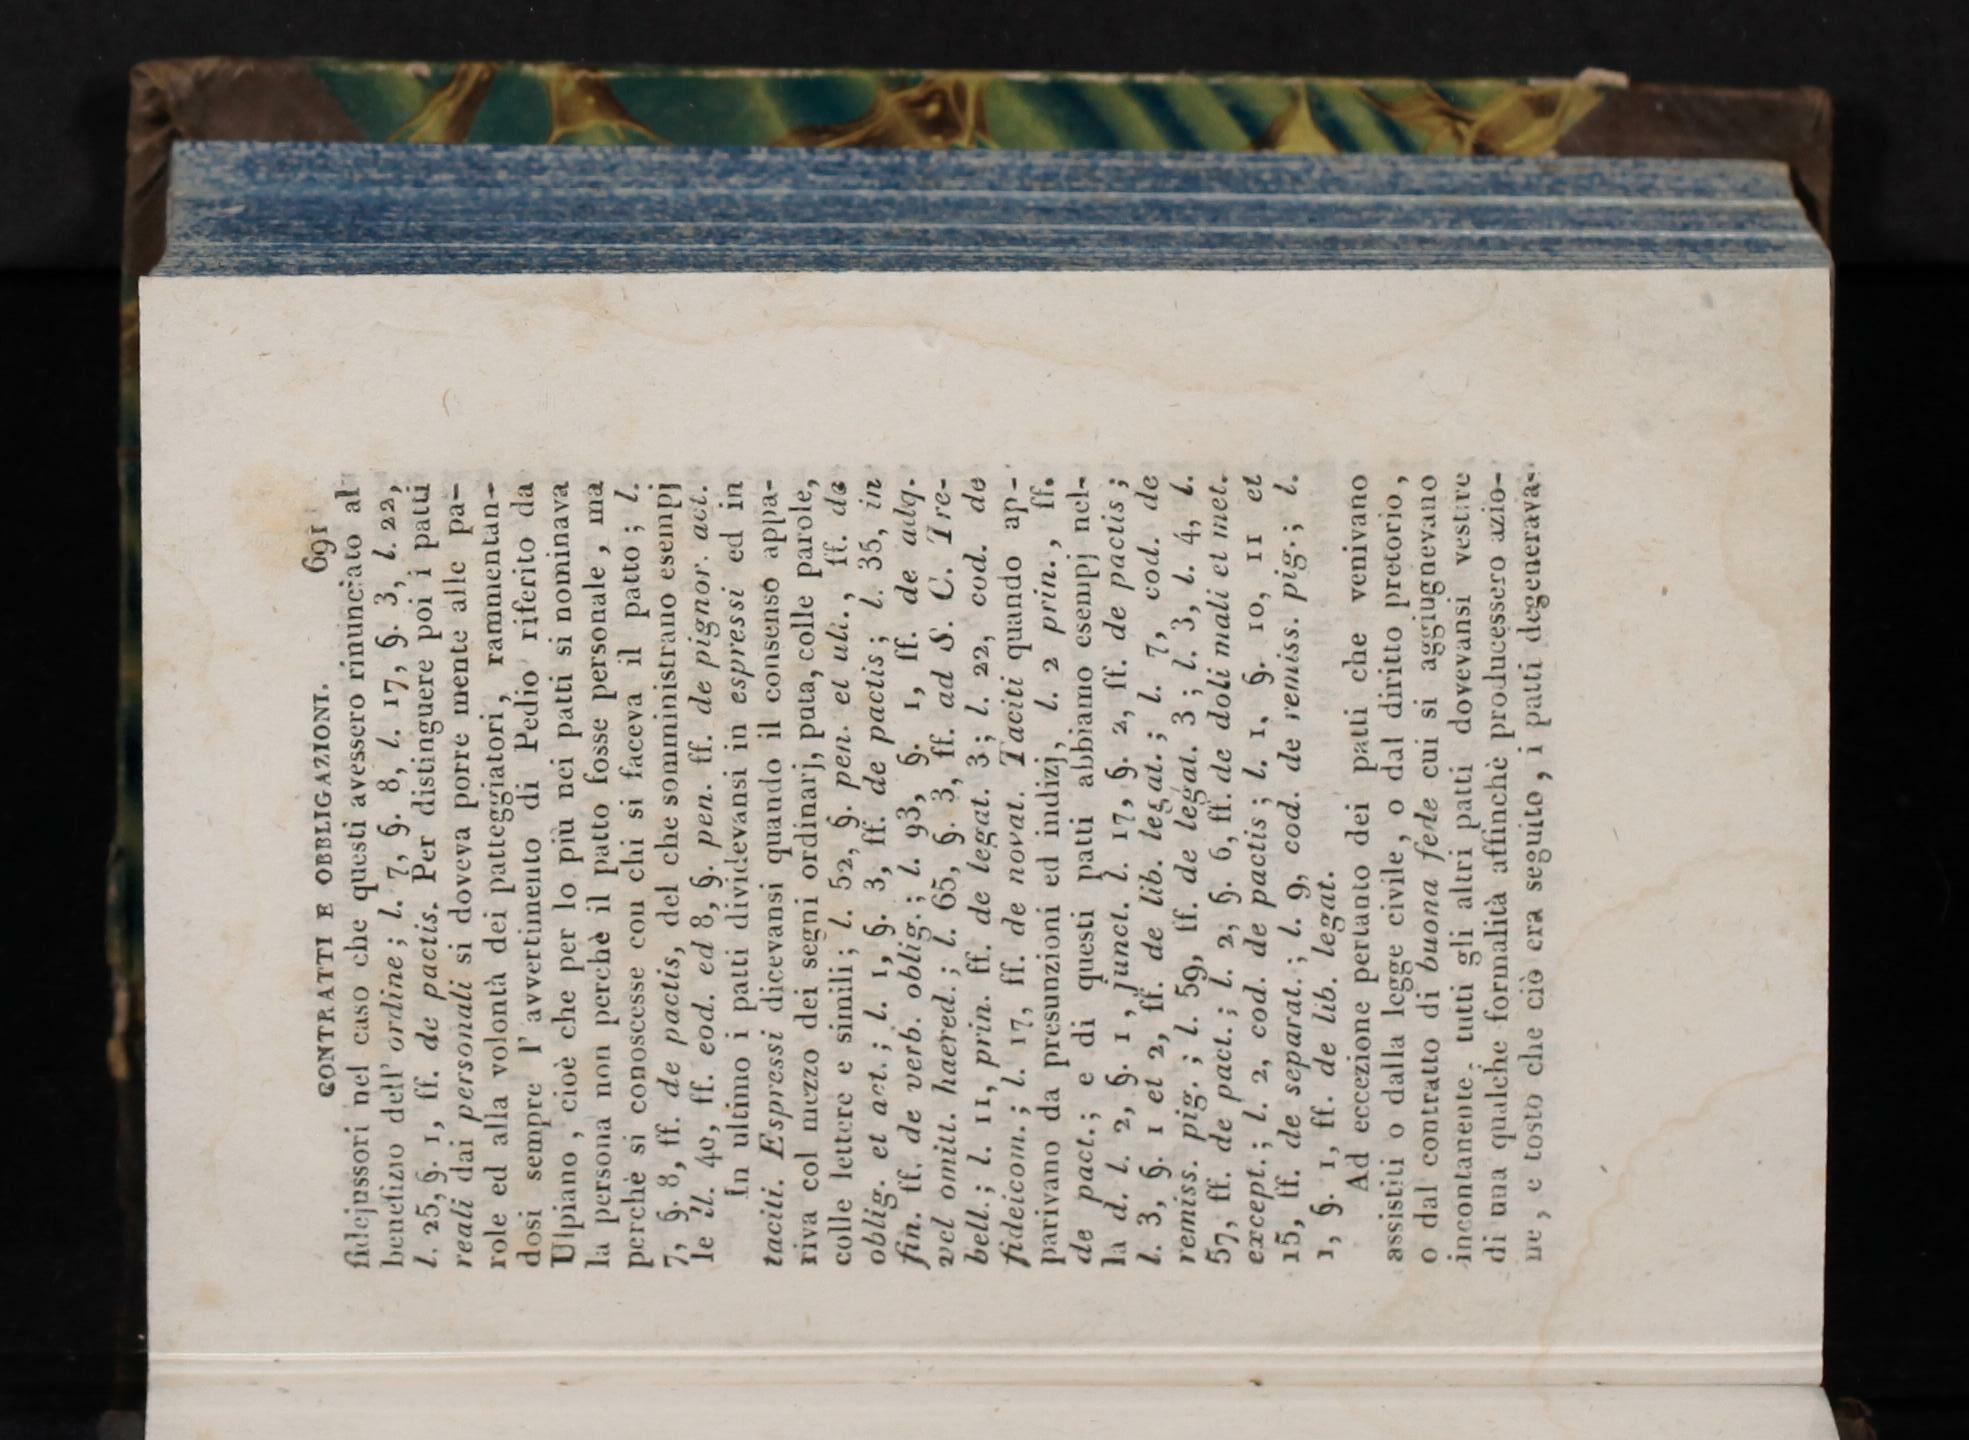 CONTRATTI E OBBLIGAZIONI. 691
fidejussori nel caso che questi avessero rinunciato al
benefizio dell' ordine; l. 7, §. 8, l. 17, §. 3, l. 22,
l. 25, §. 1, ff. de pactis. Per distinguere poi i patti
reali dai personali si doveva porre mente alle pa-
role ed alla volontà dei patteggiatori, rammentan-
dosi sempre l' avvertimento di Pedio riferito da
Ulpiano, cioè che per lo più nei patti si nominava
la persona non perchè il patto fosse personale, ma
perchè si conoscesse con chi si faceva il patto; l.
7, §. 8, ff. de pactis, del che somministrano esempj
le il. 40, ff. eod. ed 8, §. pen. ff. de pignor. act.
In ultimo i patti dividevansi in espressi ed in
taciti. Espressi dicevansi quando il consenso appa-
riva col mezzo dei segni ordinarj, puta, colle parole,
colle lettere e simili; l. 52, §. pen. et ult., ff. de
oblig. et act.; l. 1, §. 3, ff. de pactis; l. 35, in
fin. ff. de verb. oblig.; l. 93, §. 1, ff. de adq.
vel omitt. haered.; l. 65, §. 3, ff. ad S. C. Tre-
bell.; l. 11, prin. ff. de legat. 3; l. 22, cod. de
fideicom.; l. 17, ff. de novat. Taciti quando ap-
parivano da presunzioni ed indizj, l. 2 prin., ff.
de pact.; e di questi patti abbiamo esempj nel-
la d. l. 2, §. 1, junct. l. 17, §. 2, ff. de pactis;
l. 3, §. 1 et 2, ff. de lib. legat.; l. 7, cod. de
remiss. pig.; l. 59, ff. de legat. 3; l. 3, l. 4, l.
57, ff. de pact.; l. 2, §. 6, ff. de doli mali et met.
except.; l. 2, cod. de pactis; l. 1, §. 10, 11 et
15, ff. de separat.; l. 9, cod. de remiss. pig.; l.
1, §. 1, ff. de lib. legat.
Ad eccezione pertanto dei patti che venivano
assistiti o dalla legge civile, o dal diritto pretorio,
o dal contratto di buona fede cui si aggiugnevano
incontanente, tutti gli altri patti dovevansi vestire
di una qualche formalità affinchè producessero azio-
ne, e tosto che ciò era seguito, i patti degenerava-